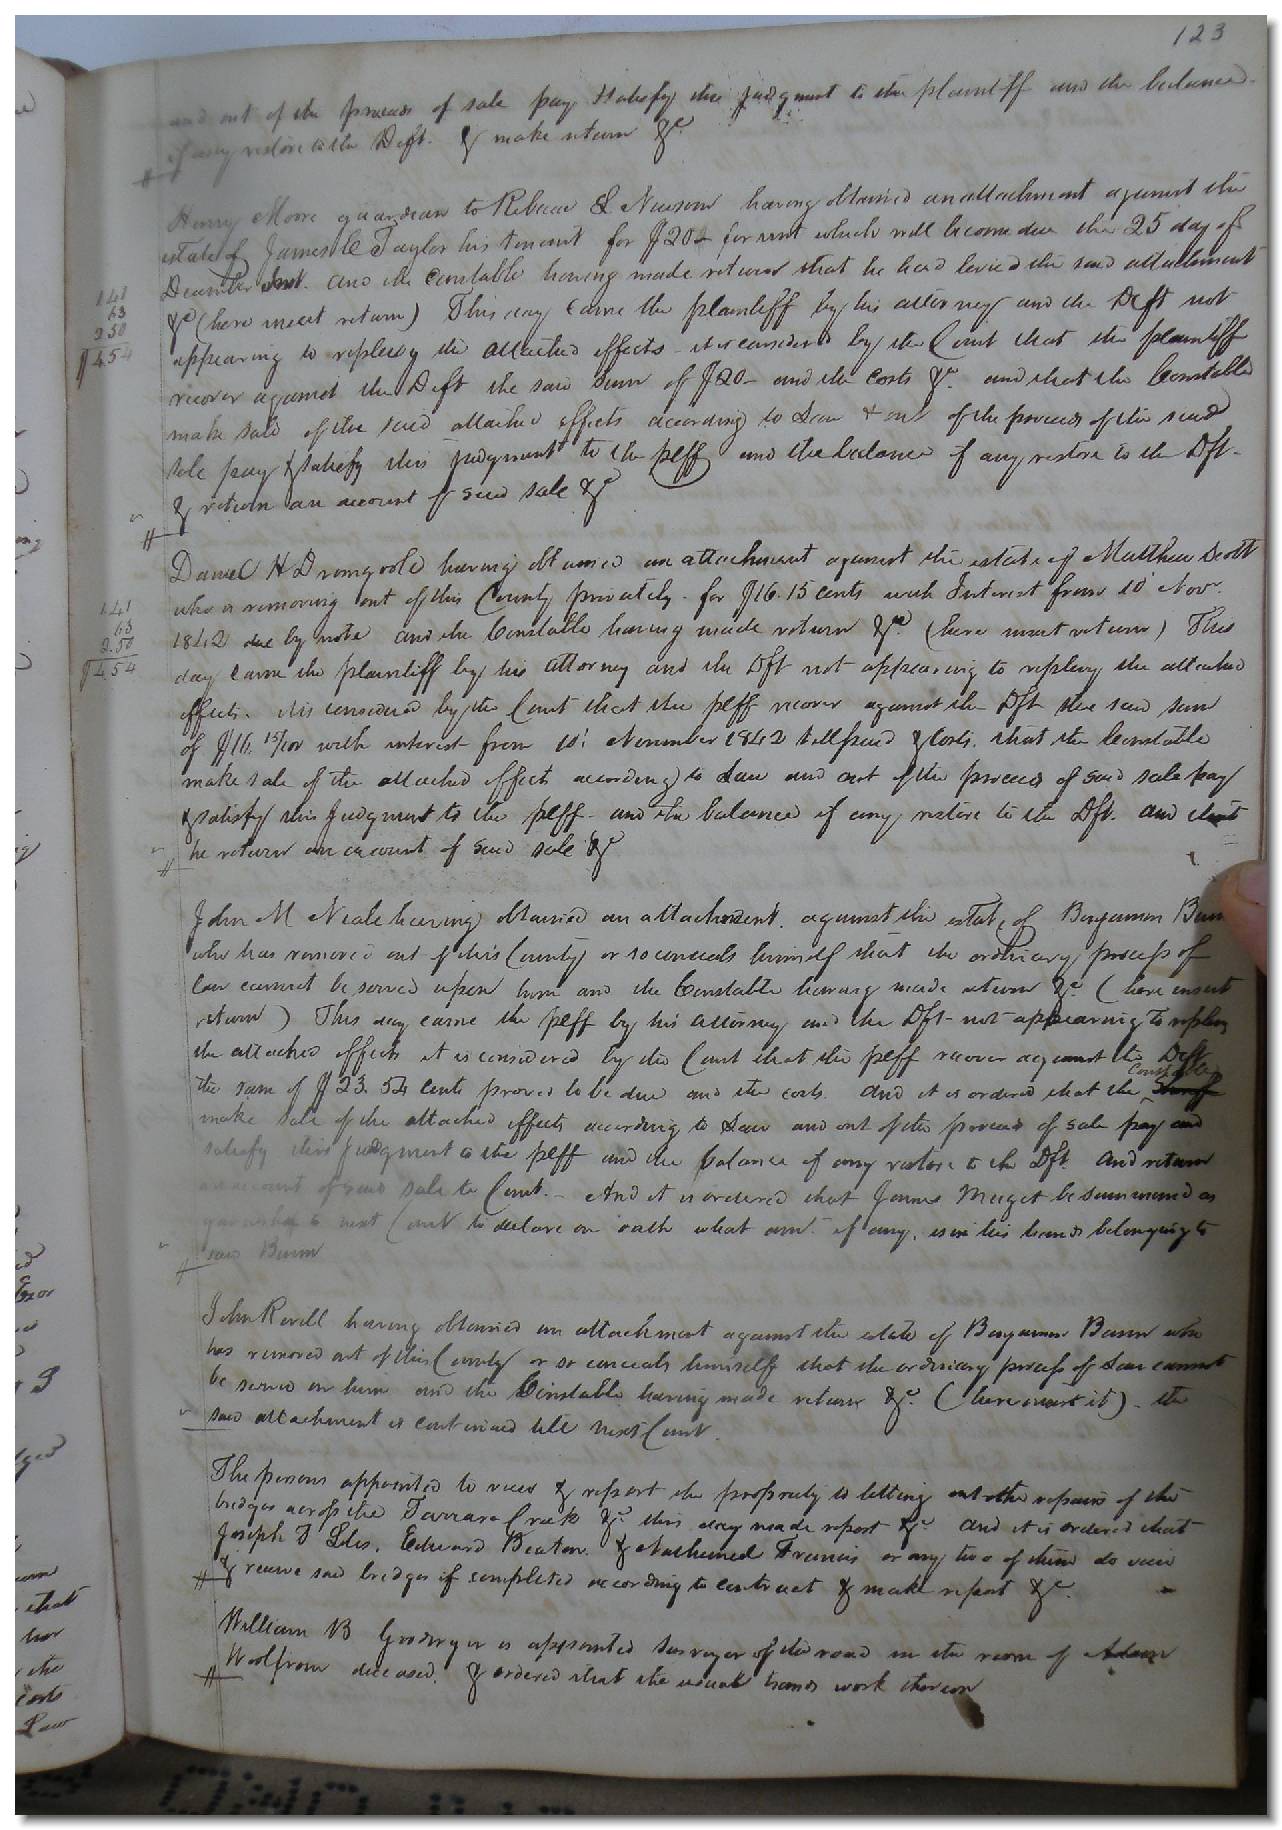 123
and out of the proceeds of sale pay & satisfy this judgment to the plaintiff and the balance
if any restore to the Deft. & make return &c
Henry Moore guardian to Rebecca S Newsom having obtained an attachment against the
estate of James Taylor his tenant for $20– for rent which will become due the 25 day of
December Inst. and the Constable having made return that he had levied the said attachment
&c (here insert return) This day came the plaintiff by his attorney and the Deft not
appearing to replevy the attached effects it is considered by the Court that the plaintiff
recover against the Deft the said sum of $20– and the costs &c. and that the Constable
make sale of the said attached effects according to Law & out of the proceeds of the said
sale pay & satisfy this judgment to the plff and the balance if any restore to the Dft.
& return an account of said sale &c
141
63
250
$454
Daniel H Dromgoole having obtained an attachment against the estate of Matthew Scott
who is removing out of this County privately for $16.15 cents with Interest from 10 Nov.
1842 due by note and the Constable having made return &c (here insert return) This
day came the plaintiff by his attorney and the Dft not appearing to replevy the attached
effects. it is considered by the Court that the plff recover against the Dft the said sum
of $16. 15/100 with interest from 10: November 1842 till paid & Costs. that the Constable
make sale of the attached effects according to Law and out of the proceeds of said sale pay
& satisfy this Judgment to the plff. and the balance if any restore to the Dft. and that
he return an account of said sale &c
141
63
2.50
$4.54
John M Neale having obtained an attachment. against the estate of Benjamin
who has removed out of this County or so conceals himself that the ordinary process of
law cannot be served upon him and the Constable having made return &c. (here insert
return) This day came the plff by his attorney and the Dft not appearing to replevy
the attached effects it is considered by the Court that the plff recover against the Deft
the sum of $23.54 cents proved to be due and the costs. and it is ordered that the Constable
make sale of the attached effects according to Law and out of the proceeds of sale pay and
satisfy this judgment to the plff and the balance if any restore to the Dft. and return
an account of said sale to Court.– And it is ordered that James be summoned as
garnishee to next Court to declare on oath what amt. if any, is in his hands belonging to
said Bunn
John Revill having obtained an attachment against the estate of Benjamin Bunn who
has removed out of this County or so conceals himself that the ordinary process of Law cannot
be served on him and the Constable having made return &c. (here insert it) – the
said attachment is continued till next Court.
The persons appointed to view & report the propriety of letting out the repairs of the
bridges across the Tarrara Creek &c. this day made report &c. and it is ordered that
Joseph J Liles, Edward Beaton. & Nathaniel Francis or any two of them do view
& receive said bridges if completed according to contract & make report &c.
William B Goodwyn is appointed Surveyor of the road in the room of Adam
Woolfrom deceased. & ordered that the usual hands work thereon